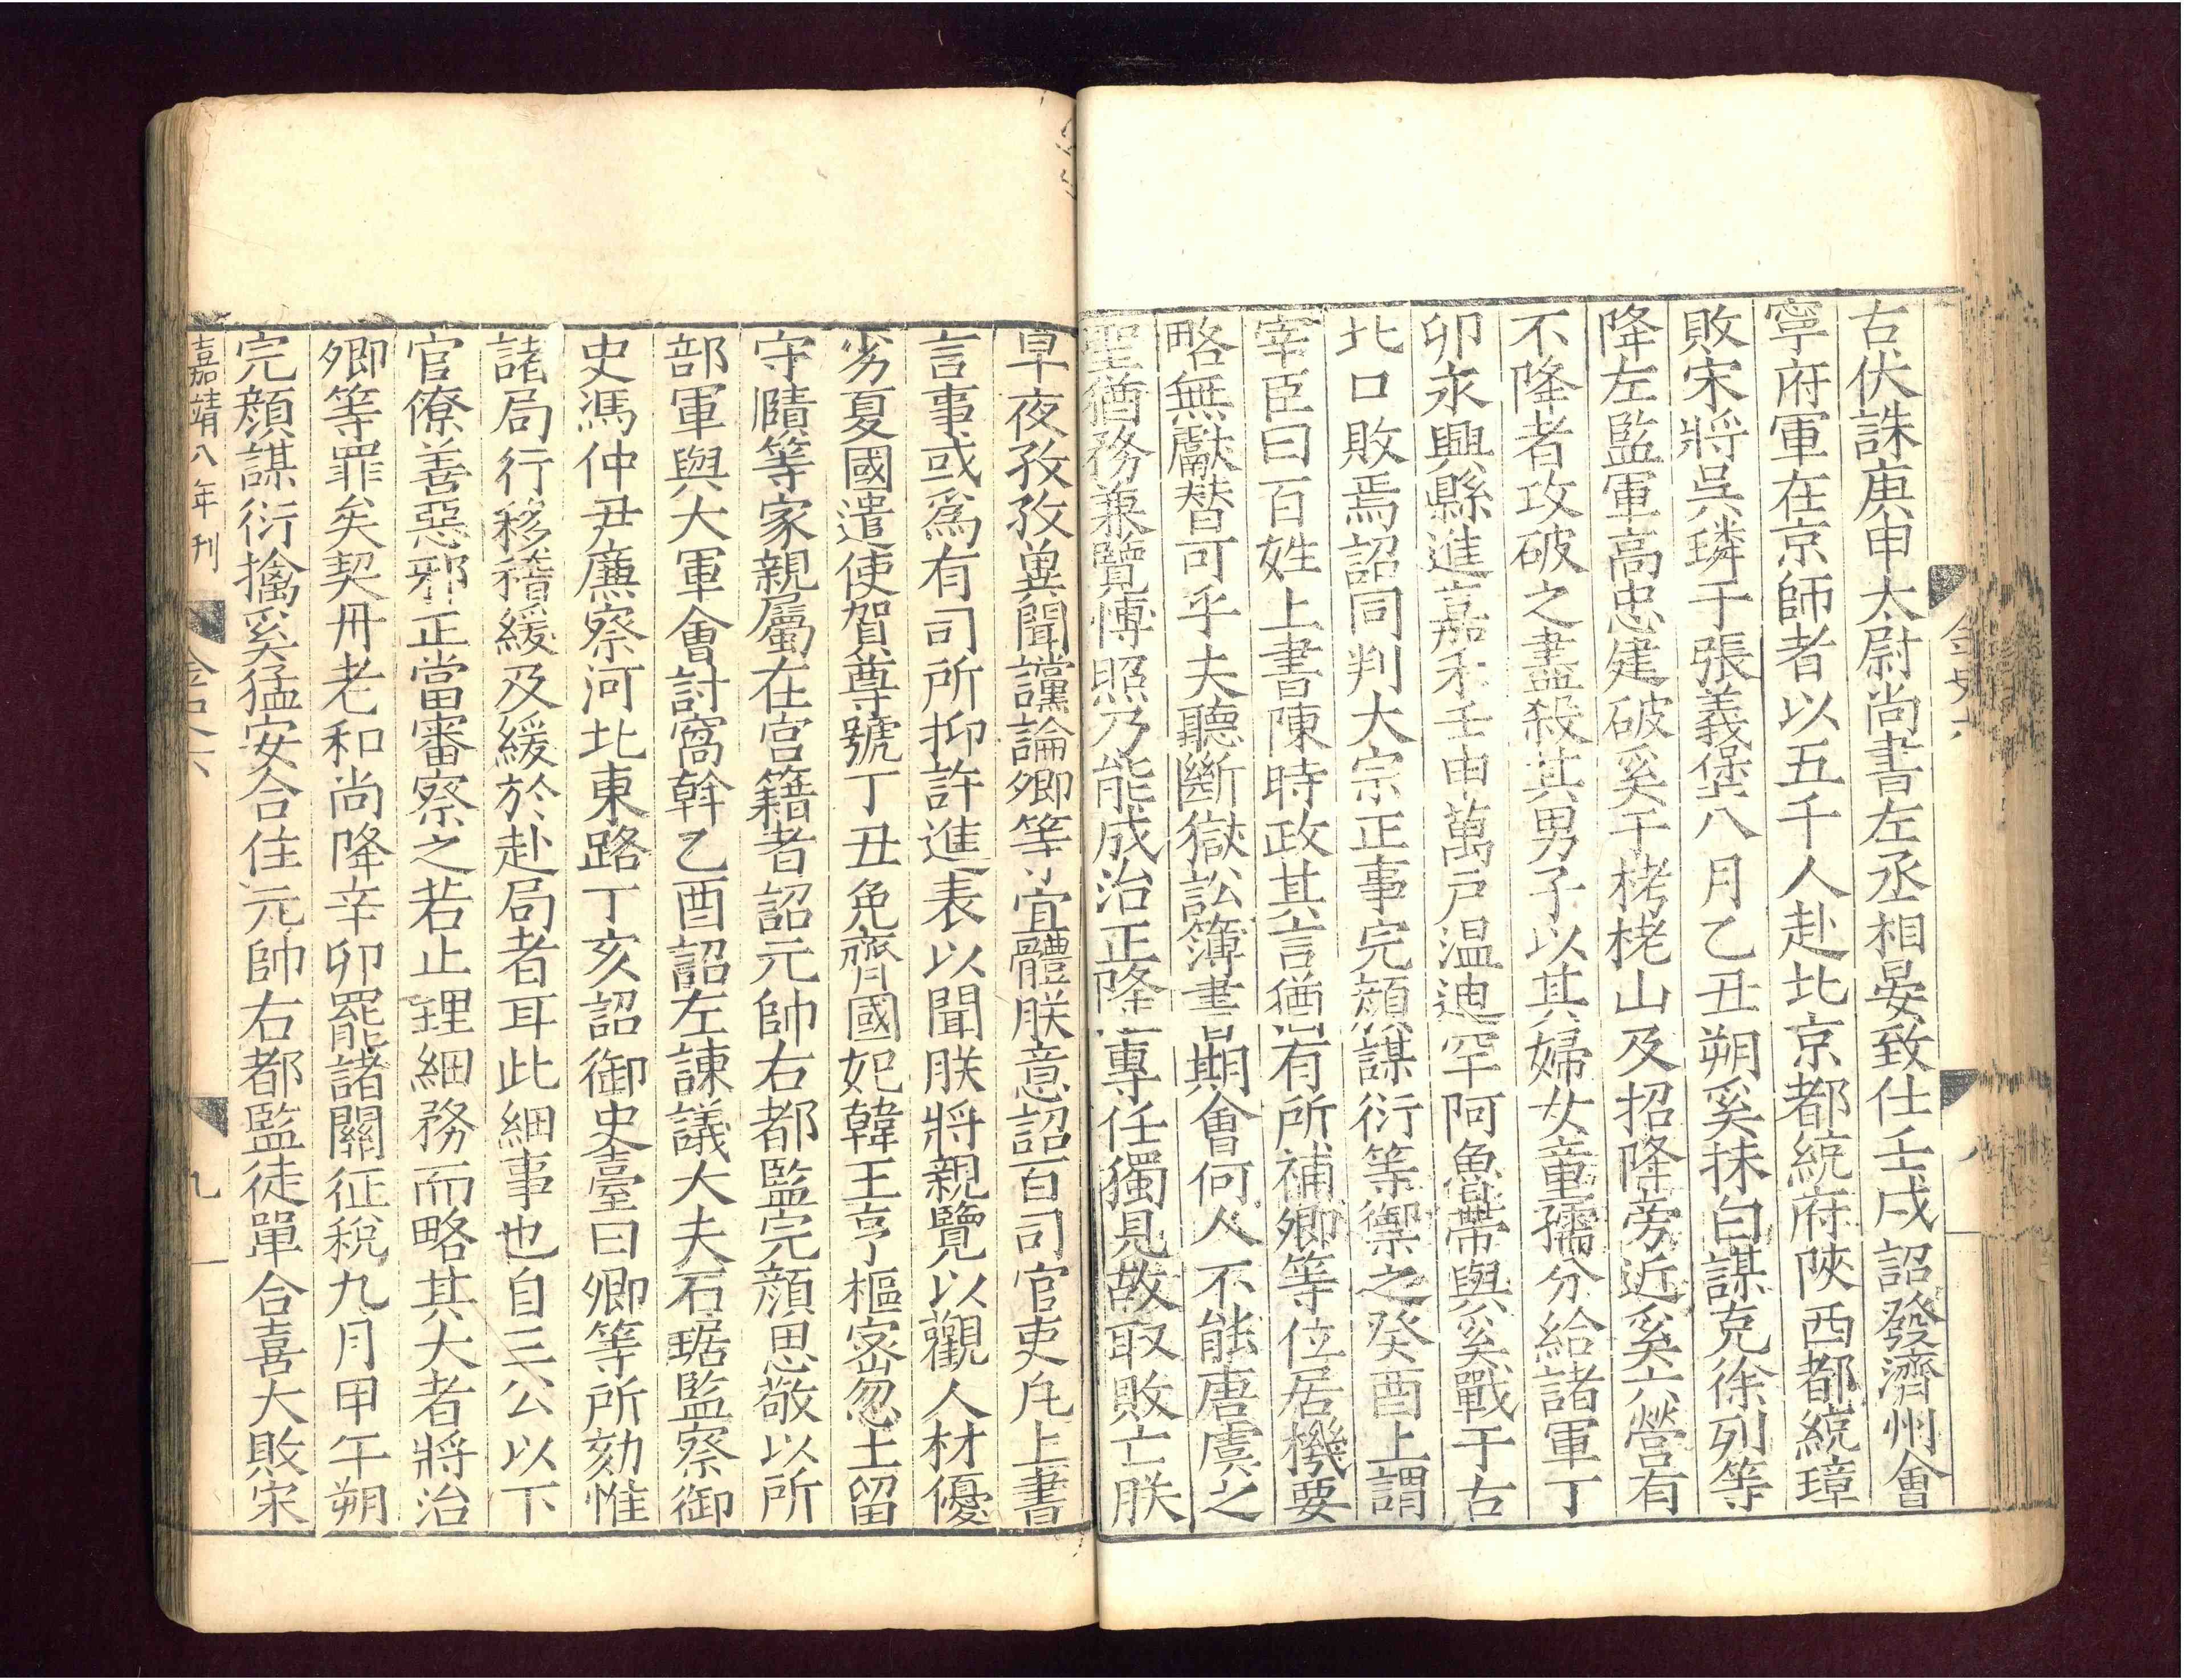 金史六
八
古伏誅庚申太尉尚書左丞相晏致仕壬戌詔發濟州會
寧府軍在京師者以五千人赴北京都統府陝西都統璋
敗宋將吳璘于張義堡八月乙丑朔奚抹白謀克徐列等
降左監軍高忠建破奚于栲栳山及招降旁近奚六營有
不降者攻破之盡殺其男子以其婦女童孺分給諸軍丁
卯永興縣進嘉禾壬申萬戶温迪罕阿魯帶與奚戰于古
北口敗焉詔同判大宗正事完顔謀衍等禦之癸酉上謂
宰臣曰百姓上書陳時政其言猶有所補卿等位居機要
略無獻替可乎夫聽斷獄訟簿書期會何人不能唐虞之
聖猶務兼覽博照乃能成治正隆專任獨見故取敗亡朕
早夜孜孜兾聞讜論卿等宜體朕意詔百司官吏凡上書
言事或爲有司所抑許進表以聞朕將親覽以觀人材優
劣夏國遣使賀尊號丁丑免齊國妃韓王亨樞密忽土留
守賾等家親屬在宫籍者詔元帥右都監完顔思敬以所
部軍與大軍會討窩斡乙酉詔左諫議大夫石琚監察御
史馮仲尹廉察河北東路丁亥詔御史臺曰卿等所劾惟
諸局行移稽緩及緩於赴局者耳此細事也自三公以下
官僚善惡邪正當審察之若止理細務而略其大者將治
卿等罪矣契丹老和尚降辛卯罷諸關征稅九月甲午朔
完顔謀衍擒奚猛安合住元帥右都監徒單合喜大敗宋
嘉靖八年刊
金史六
九